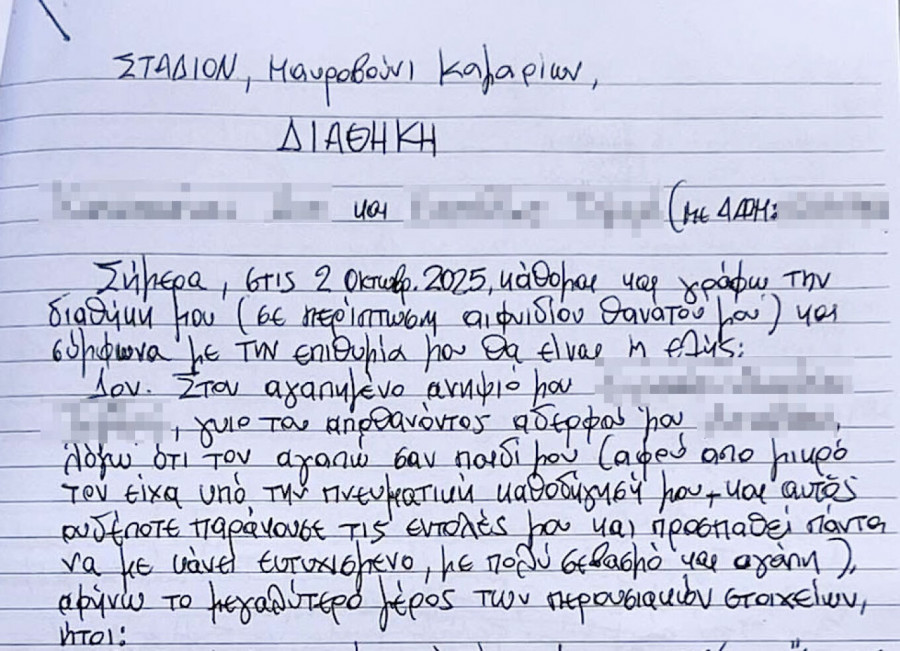 ΣΤΑΔΙΟΝ, Μαυροβούνι Καλαρίων,
ΔΙΑΘΗΚΗ
και (με ΑΦΜ:
Σήμερα, στις 2 Οκτωβρ. 2025, κάθομαι και γράφω την
διαθήκη μου (σε περίπτωση αιφνιδίου θανάτου μου) και
σύμφωνα με την επιθυμία μου θα είναι η εξής:
1ον. Στον αγαπημένο ανηψιό μου
, γυιο του αποθανόντος αδερφού μου
λόγω ότι τον αγαπώ σαν παιδί μου (αφού απο μικρό
τον είχα υπό την πνευματική καθοδήγησή μου, και αυτός
ουδέποτε παράκουσε τις εντολές μου και προσπαθεί πάντα
να με κάνει ευτυχισμένο, με πολύ σεβασμό και αγάπη),
αφήνω το μεγαλύτερο μέρος των περουσιακών στοιχείων,
ήτοι: